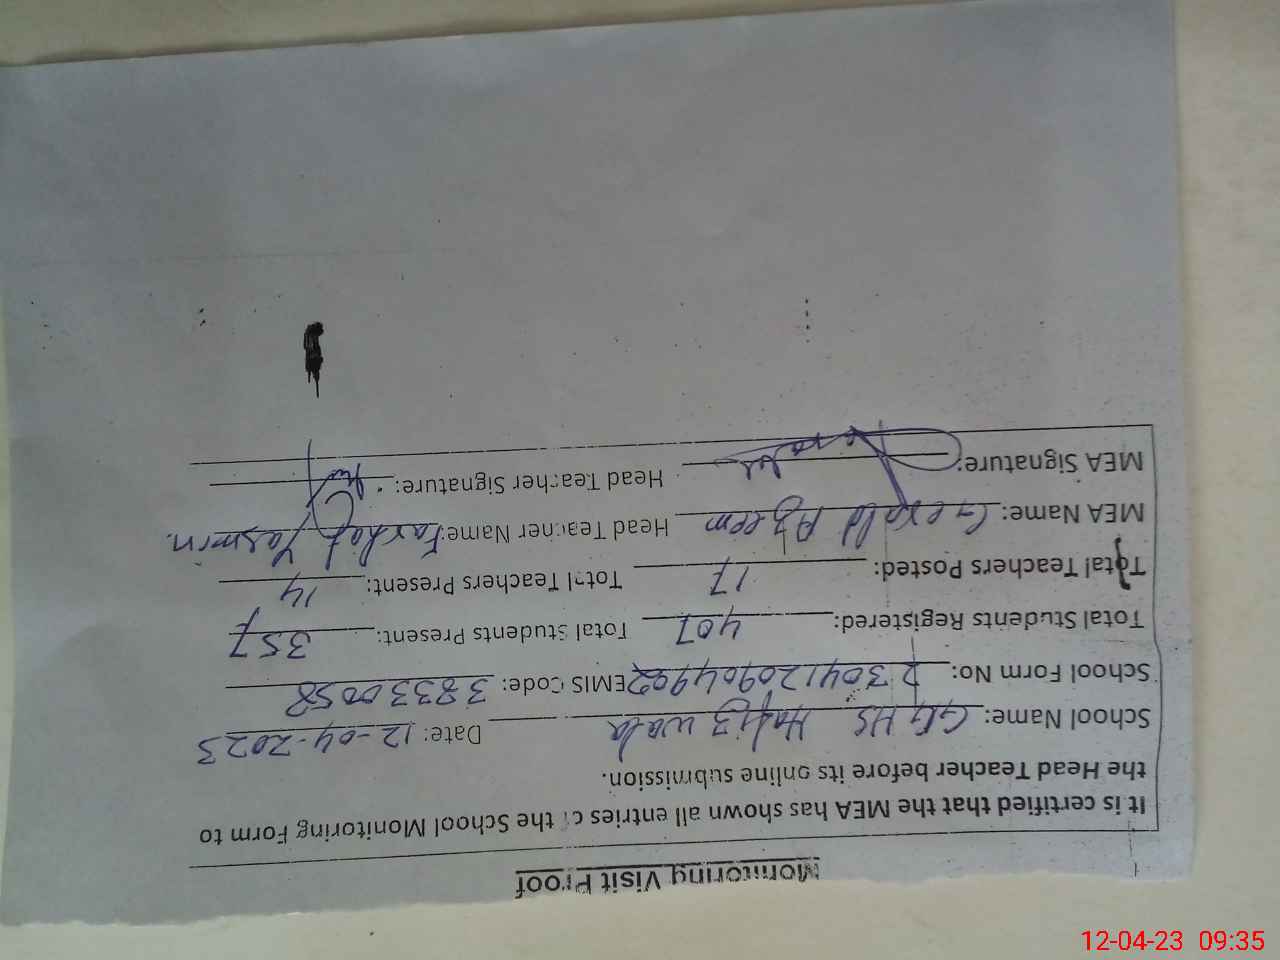 Monitoring Visit Proof
It is certified that the MEA has shown all entries of the School Monitoring Form to
the Head Teacher before its online submission.
School Name: GGHS Hafiz wala Date: 12-04-2023
School Form No: 23041209044902 EMIS Code: 38330058
Total Students Registered: 407 Total Students Present: 357
Total Teachers Posted: 17 Total Teachers Present: 14
MEA Name: Gerald Azeem Head Teacher Name: Farhat Yasmin.
MEA Signature: Head Teacher Signature:
12-04-23 09:35